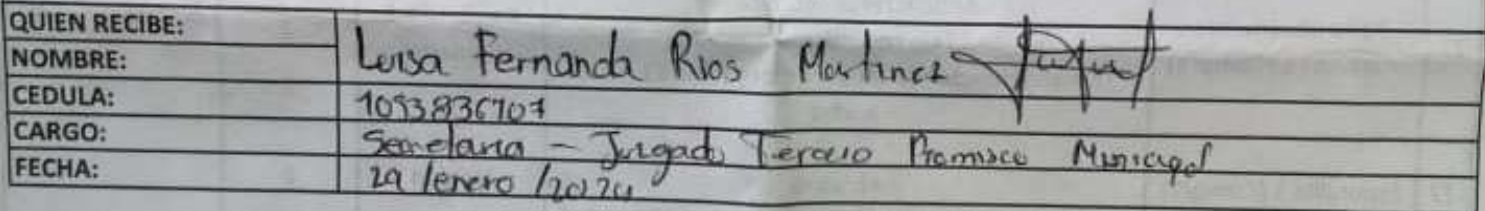 QUIEN RECIBE:
NOMBRE: Luisa Fernanda Rios Martinez
CEDULA: 1053836707
CARGO: Secretaria - Juzgado Tercero Promiscuo Municipal
FECHA: 29/enero/2024